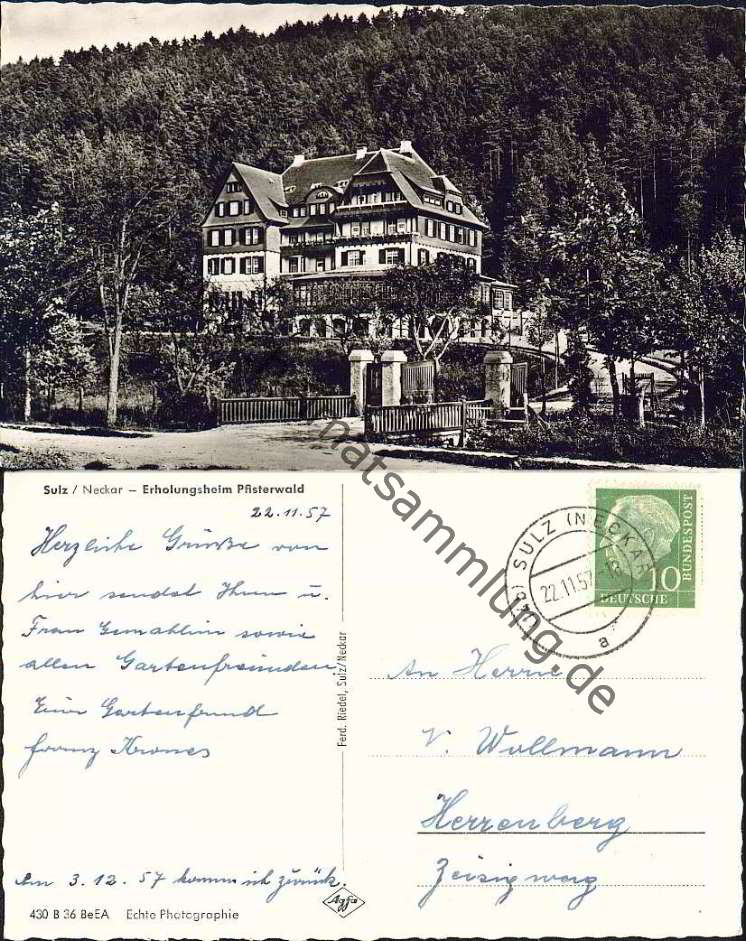 Sulz / Neckar – Erholungsheim Pfisterwald
22.11.57
Herzliche Grüße von
hier sendet Ihnen u.
Frau Gemahlin sowie
allen Gartenfreunden
Euer Gartenfreund
Franz Krones
Am 3.12.57 komm ich zurück.
430 B 36 BeEA Echte Photographie
Ferd. Riedel, Sulz/Neckar
Agfa
SULZ (NECKAR)
22.11.57
a
10
DEUTSCHE
BUNDESPOST
An Herrn
V. Wollmann
Herrenberg
Zeisigweg
matsammlung.de